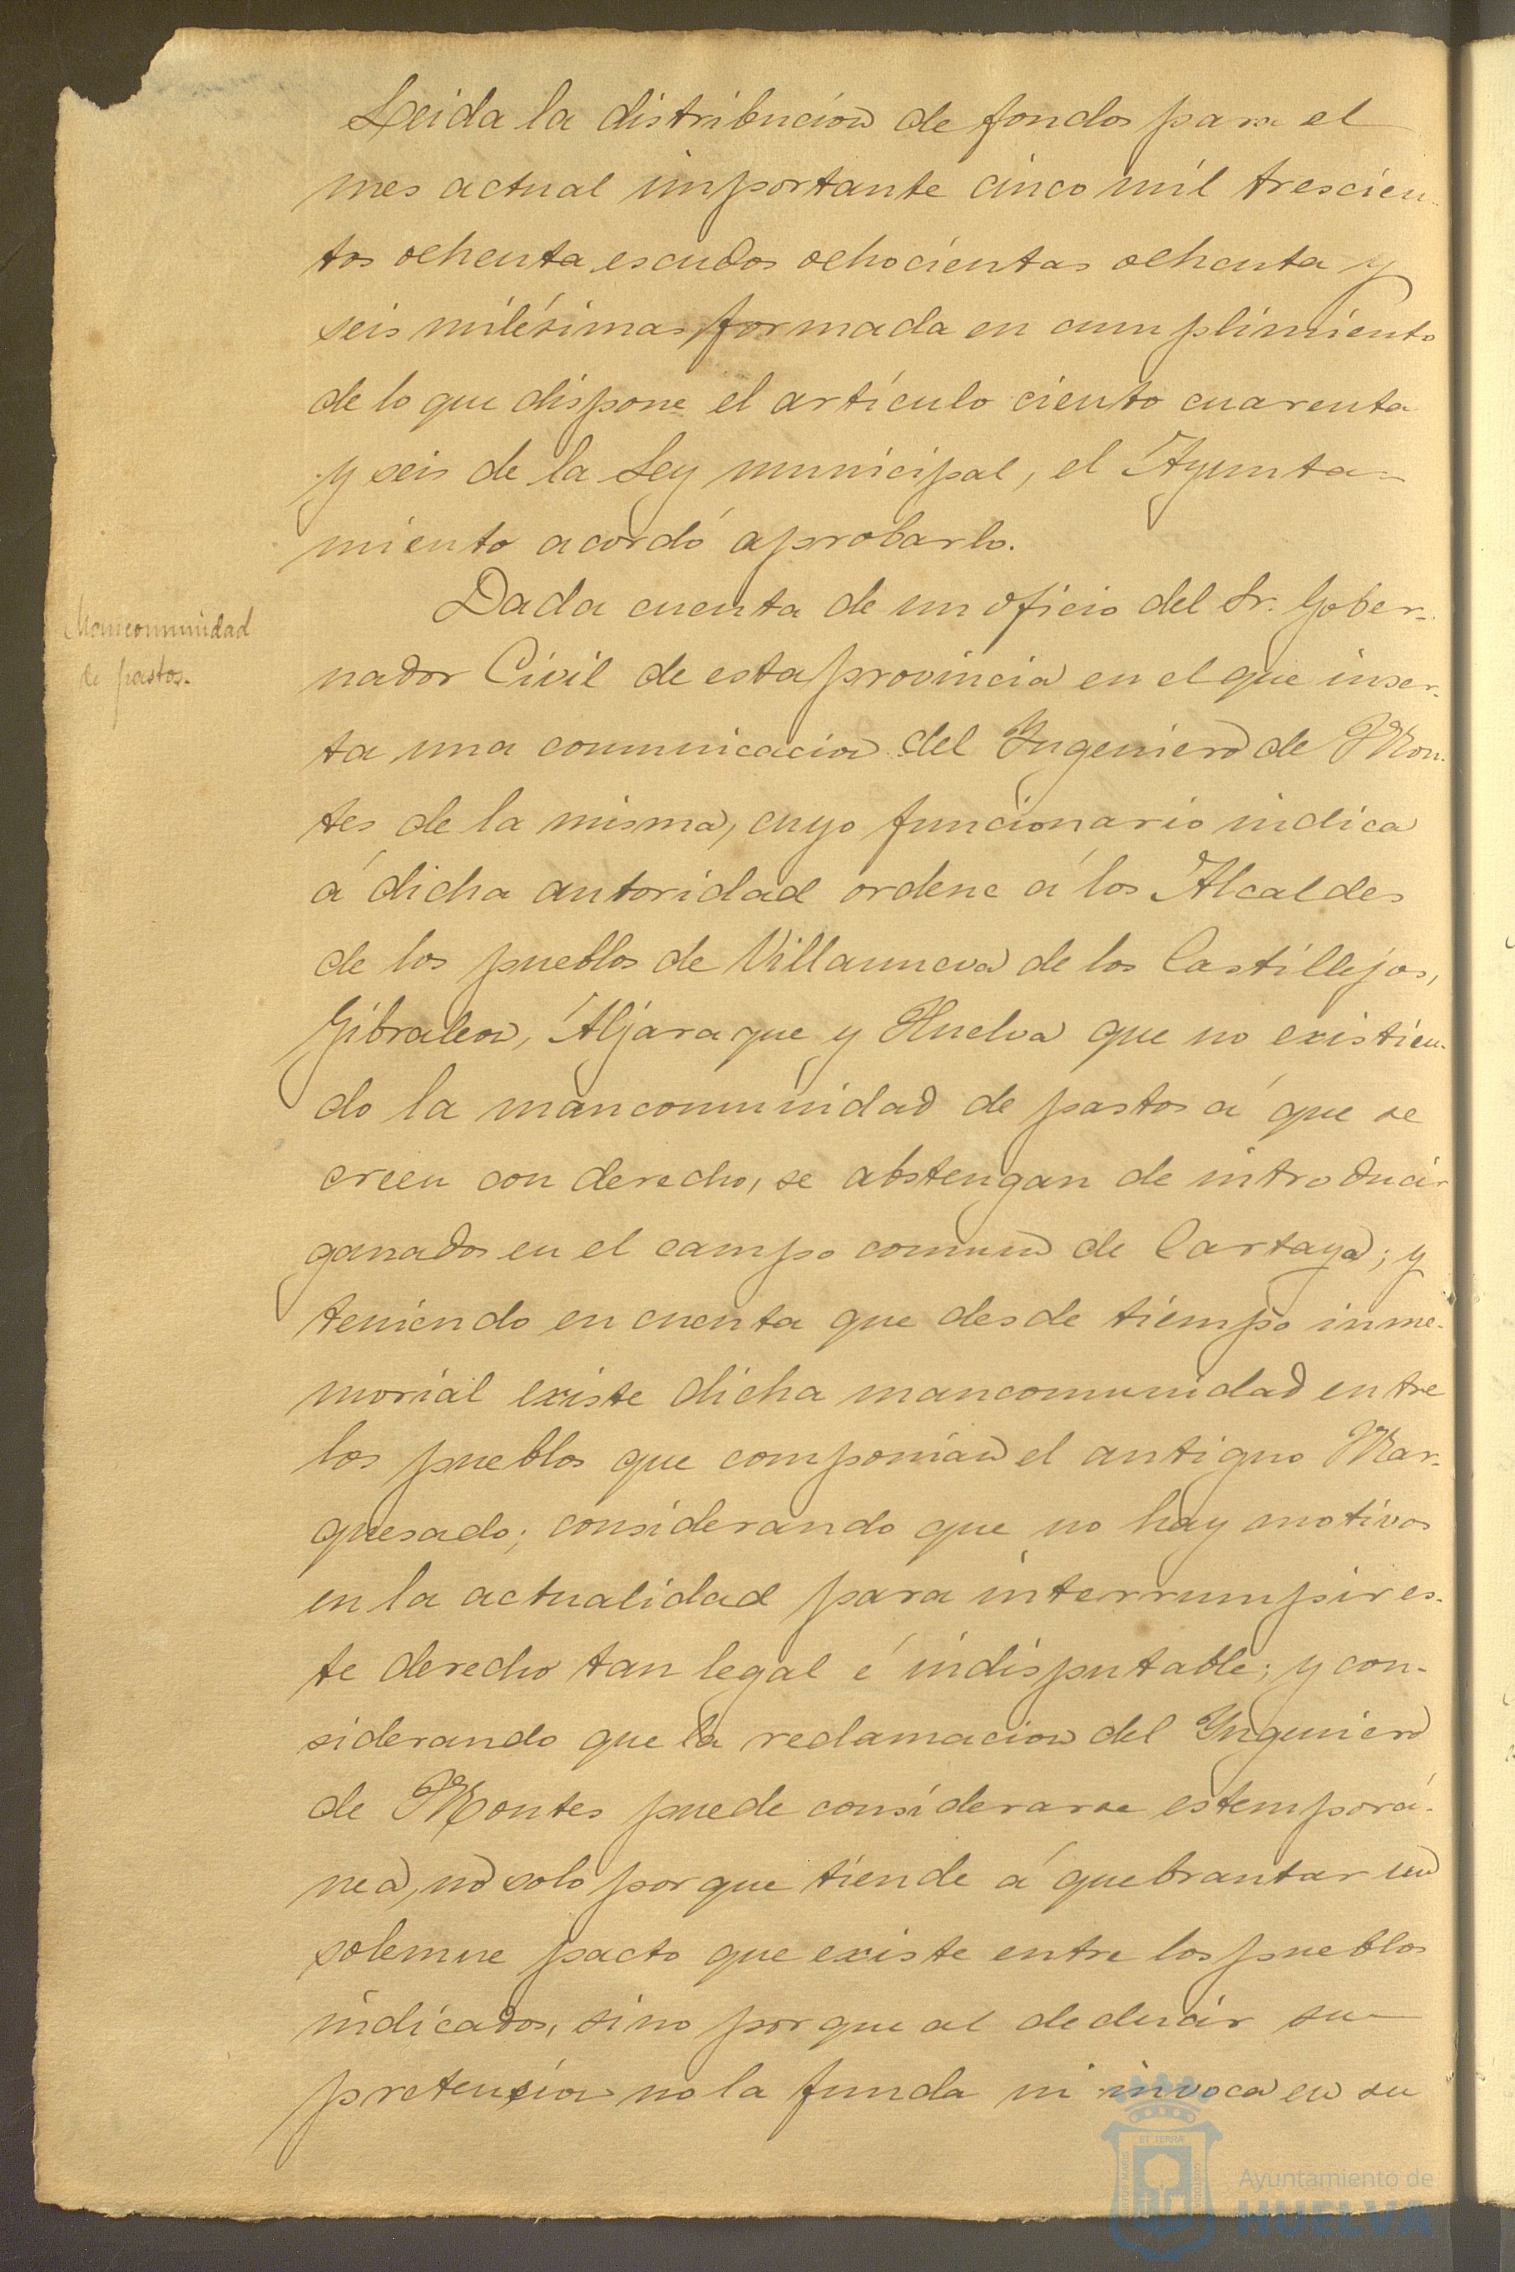 Leida la distribucion de fondos para el
mes actual importante cinco mil trescien-
tos ochenta escudos ochocientas ochenta y
seis milésimas formada en cumplimiento
de lo que dispone el artículo ciento cuarenta
y seis de la Ley municipal, el Ayunta-
miento acordó aprobarlo.
Mancomunidad
de pastos.
Dada cuenta de un oficio del Sr. Gober-
nador Civil de esta provincia en el que inser-
ta una comunicacion del Ingeniero de Mon-
tes de la misma, cuyo funcionario indica
á dicha autoridad ordene á los Alcaldes
de los pueblos de Villanueva de los Castillejos,
Gibraleon, Aljaraque y Huelva que no existien-
do la mancomunidad de pastos á que se
creen con derecho, se abstengan de introducir
ganados en el campo comun de Cartaya; y
teniendo en cuenta que desde tiempo inme-
morial existe dicha mancomunidad entre
los pueblos que componian el antiguo Mar-
quesado; considerando que no hay motivos
en la actualidad para interrumpir es-
te derecho tan legal é indisputable; y con-
siderando que la reclamacion del Ingeniero
de Montes puede considerarse estemporá-
nea, no solo porque tiende á quebrantar un
solemne pacto que existe entre los pueblos
indicados, sino porque al deducir su
pretension no la funda ni invoca en su
ET TERRA
Ayuntamiento de
HUELVA